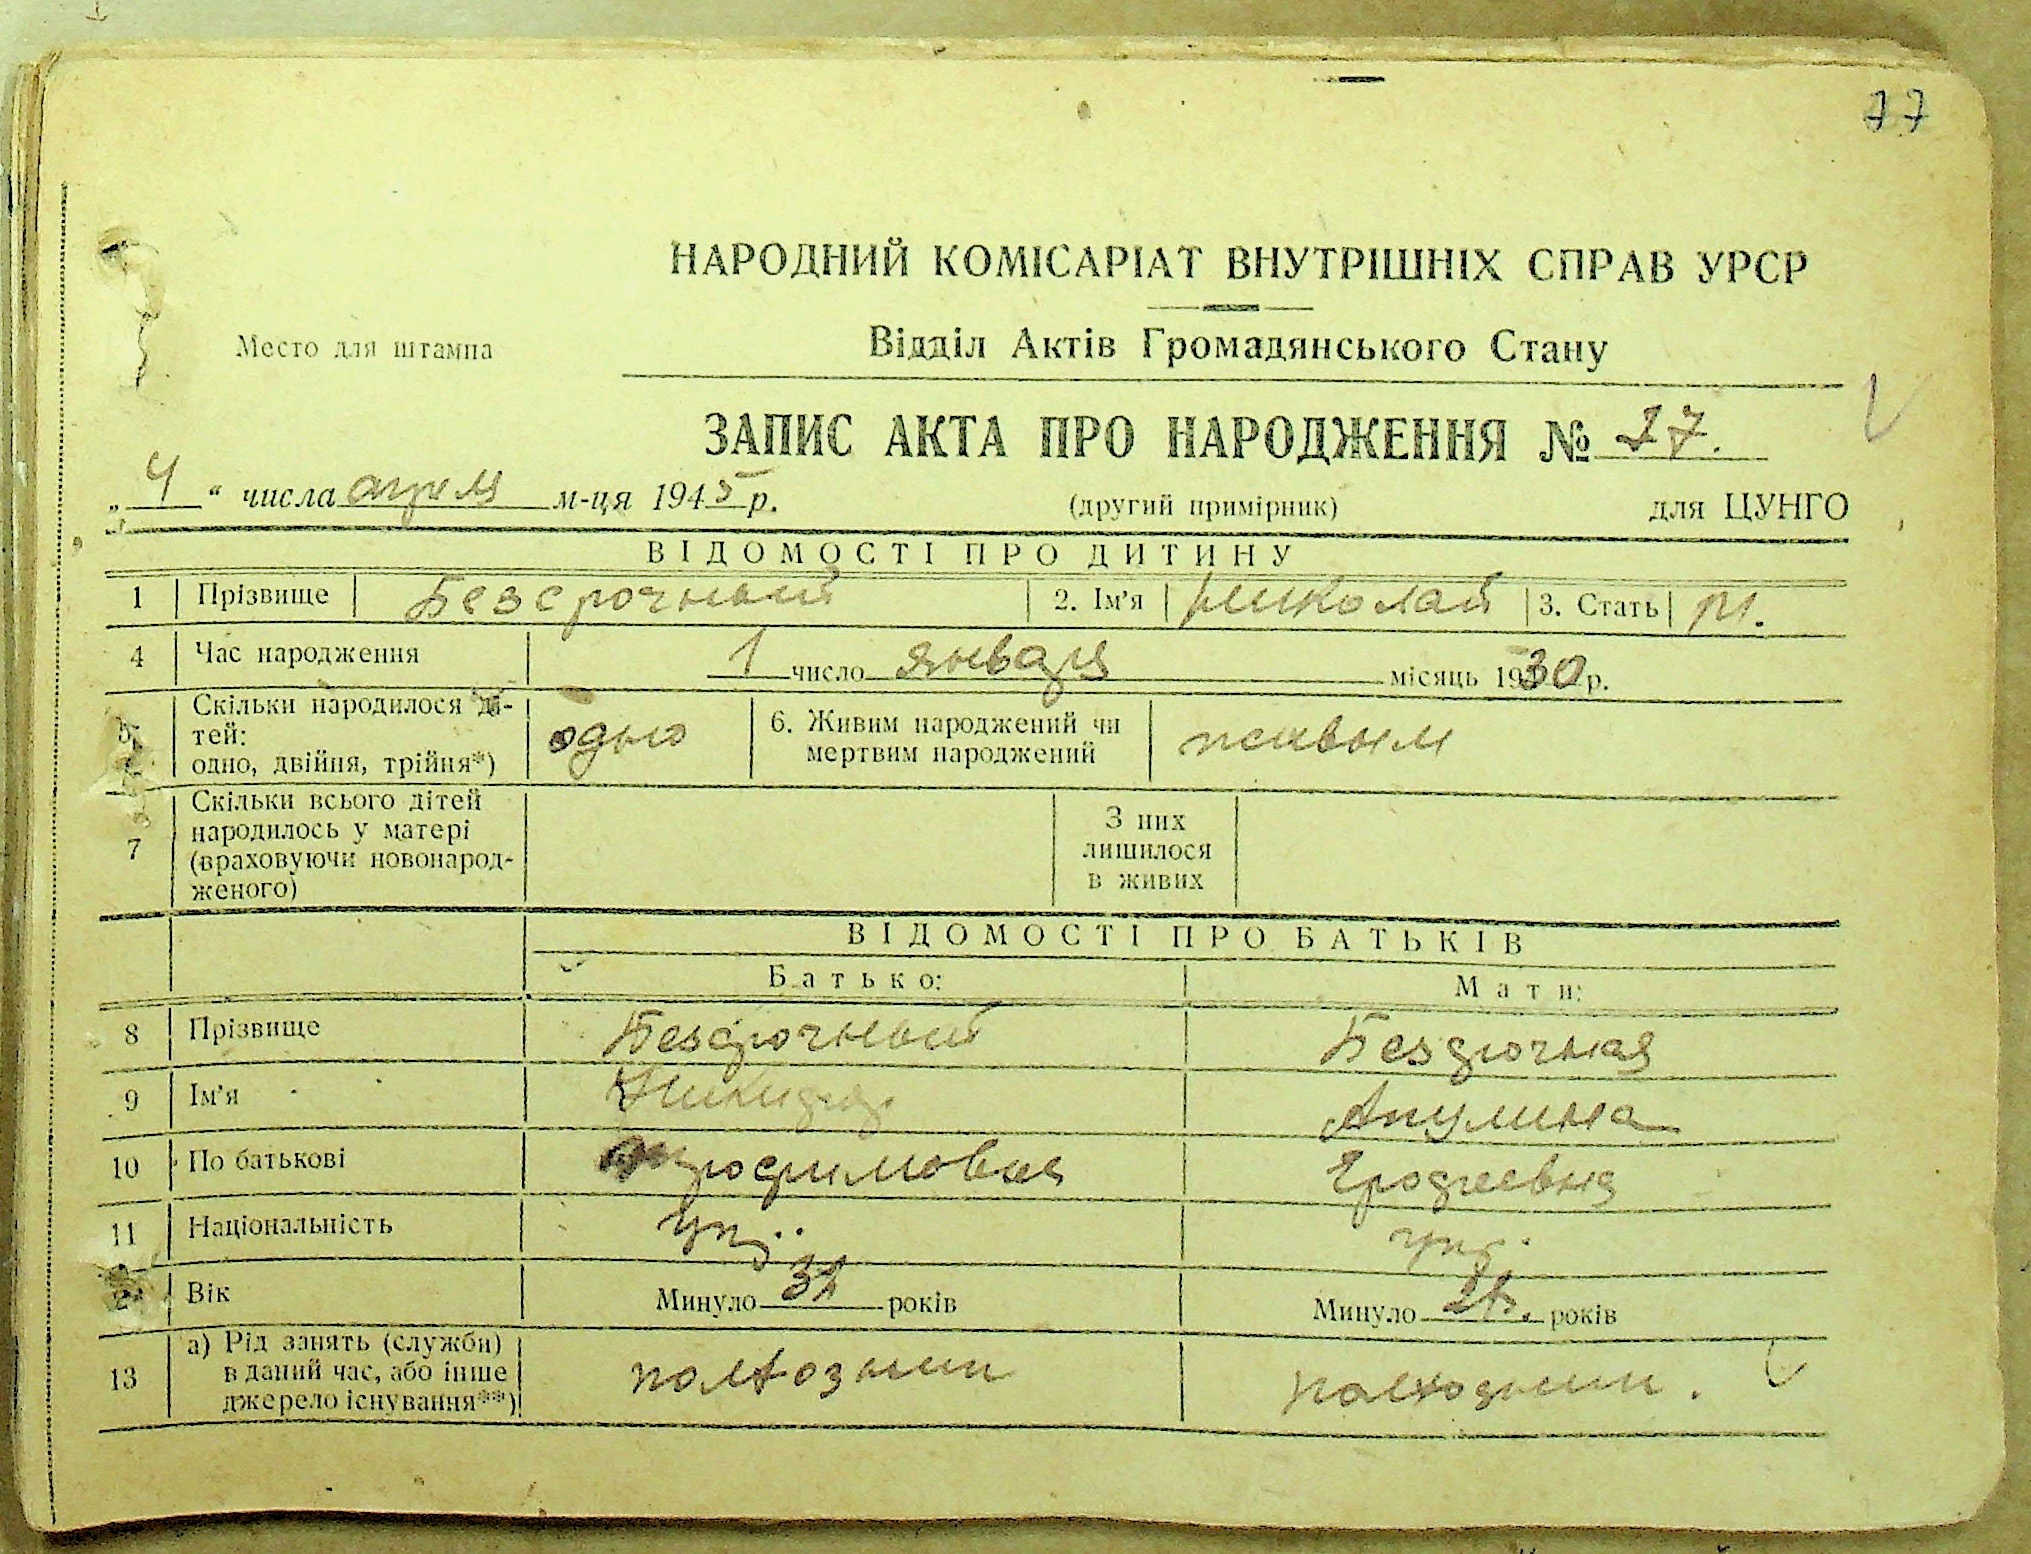 77
НАРОДНИЙ КОМІСАРІАТ ВНУТРІШНІХ СПРАВ УРСР
Место для штампа
Відділ Актів Громадянського Стану
ЗАПИС АКТА ПРО НАРОДЖЕННЯ № 27.
„ 4 “ числа апреля м-ця 1945 р. (другий примірник) для ЦУНГО
ВІДОМОСТІ ПРО ДИТИНУ
1 Прізвище Безсрочный 2. Ім'я Николай 3. Стать М.
4 Час народження 1 число января місяць 1930 р.
5 Скільки народилося ді-
тей:
одно, двійня, трійня*) одно 6. Живим народжений чи
мертвим народжений живым
7 Скільки всього дітей
народилось у матері
(враховуючи новонарод-
женого) З них
лишилося
в живих
ВІДОМОСТІ ПРО БАТЬКІВ
Батько: Мати:
8 Прізвище Безсрочный Безсрочная
9 Ім'я Акулина
10 По батькові
11 Національність укр. укр.
Вік Минуло 32 років Минуло років
13 а) Рід занять (служби)
в даний час, або інше
джерело існування**) колхозник колхозник.